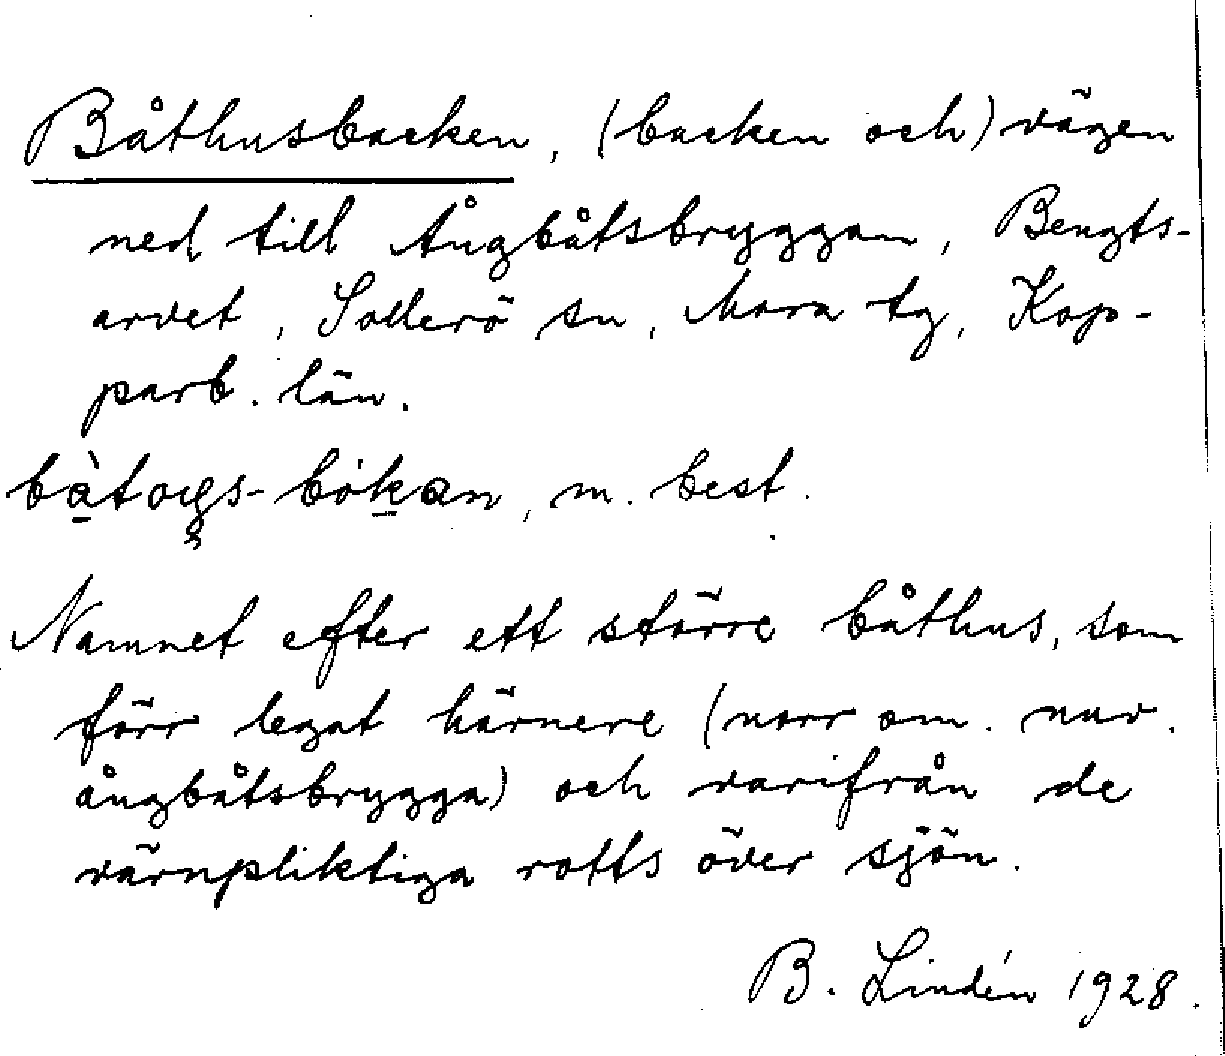 Båthusbacken, (backen och) vägen
ned till Ångbåtsbryggan, Bengts-
arvet, Sollerö sn, Mora tg, Kop-
parb. län.
m. best.
Namnet efter ett större båthus, som
förr legat härnere (norr om. nuv.
ångbåtsbrygga) och varifrån de
värnpliktiga rotts över sjön.
B. Lindén 1928.